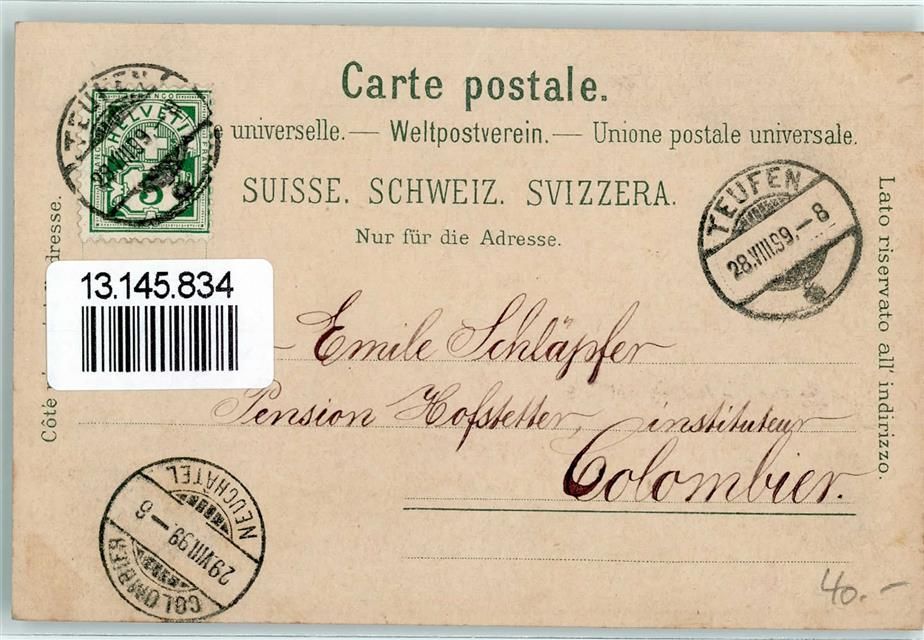 Carte postale.
e universelle. — Weltpostverein. — Unione postale universale.
SUISSE. SCHWEIZ. SVIZZERA.
Nur für die Adresse.
FRANCO
HELVETIA
5
TEUFEN
28.VIII.99.
TEUFEN
28.VIII.99.–8
13.145.834
Côté
resse.
Lato riservato all' indirizzo.
Emile Schläpfer
Pension Hofstetter, instituteur
Colombier.
NEUCHÂTEL
29.VIII.99–8
COLOMBIER
40.–